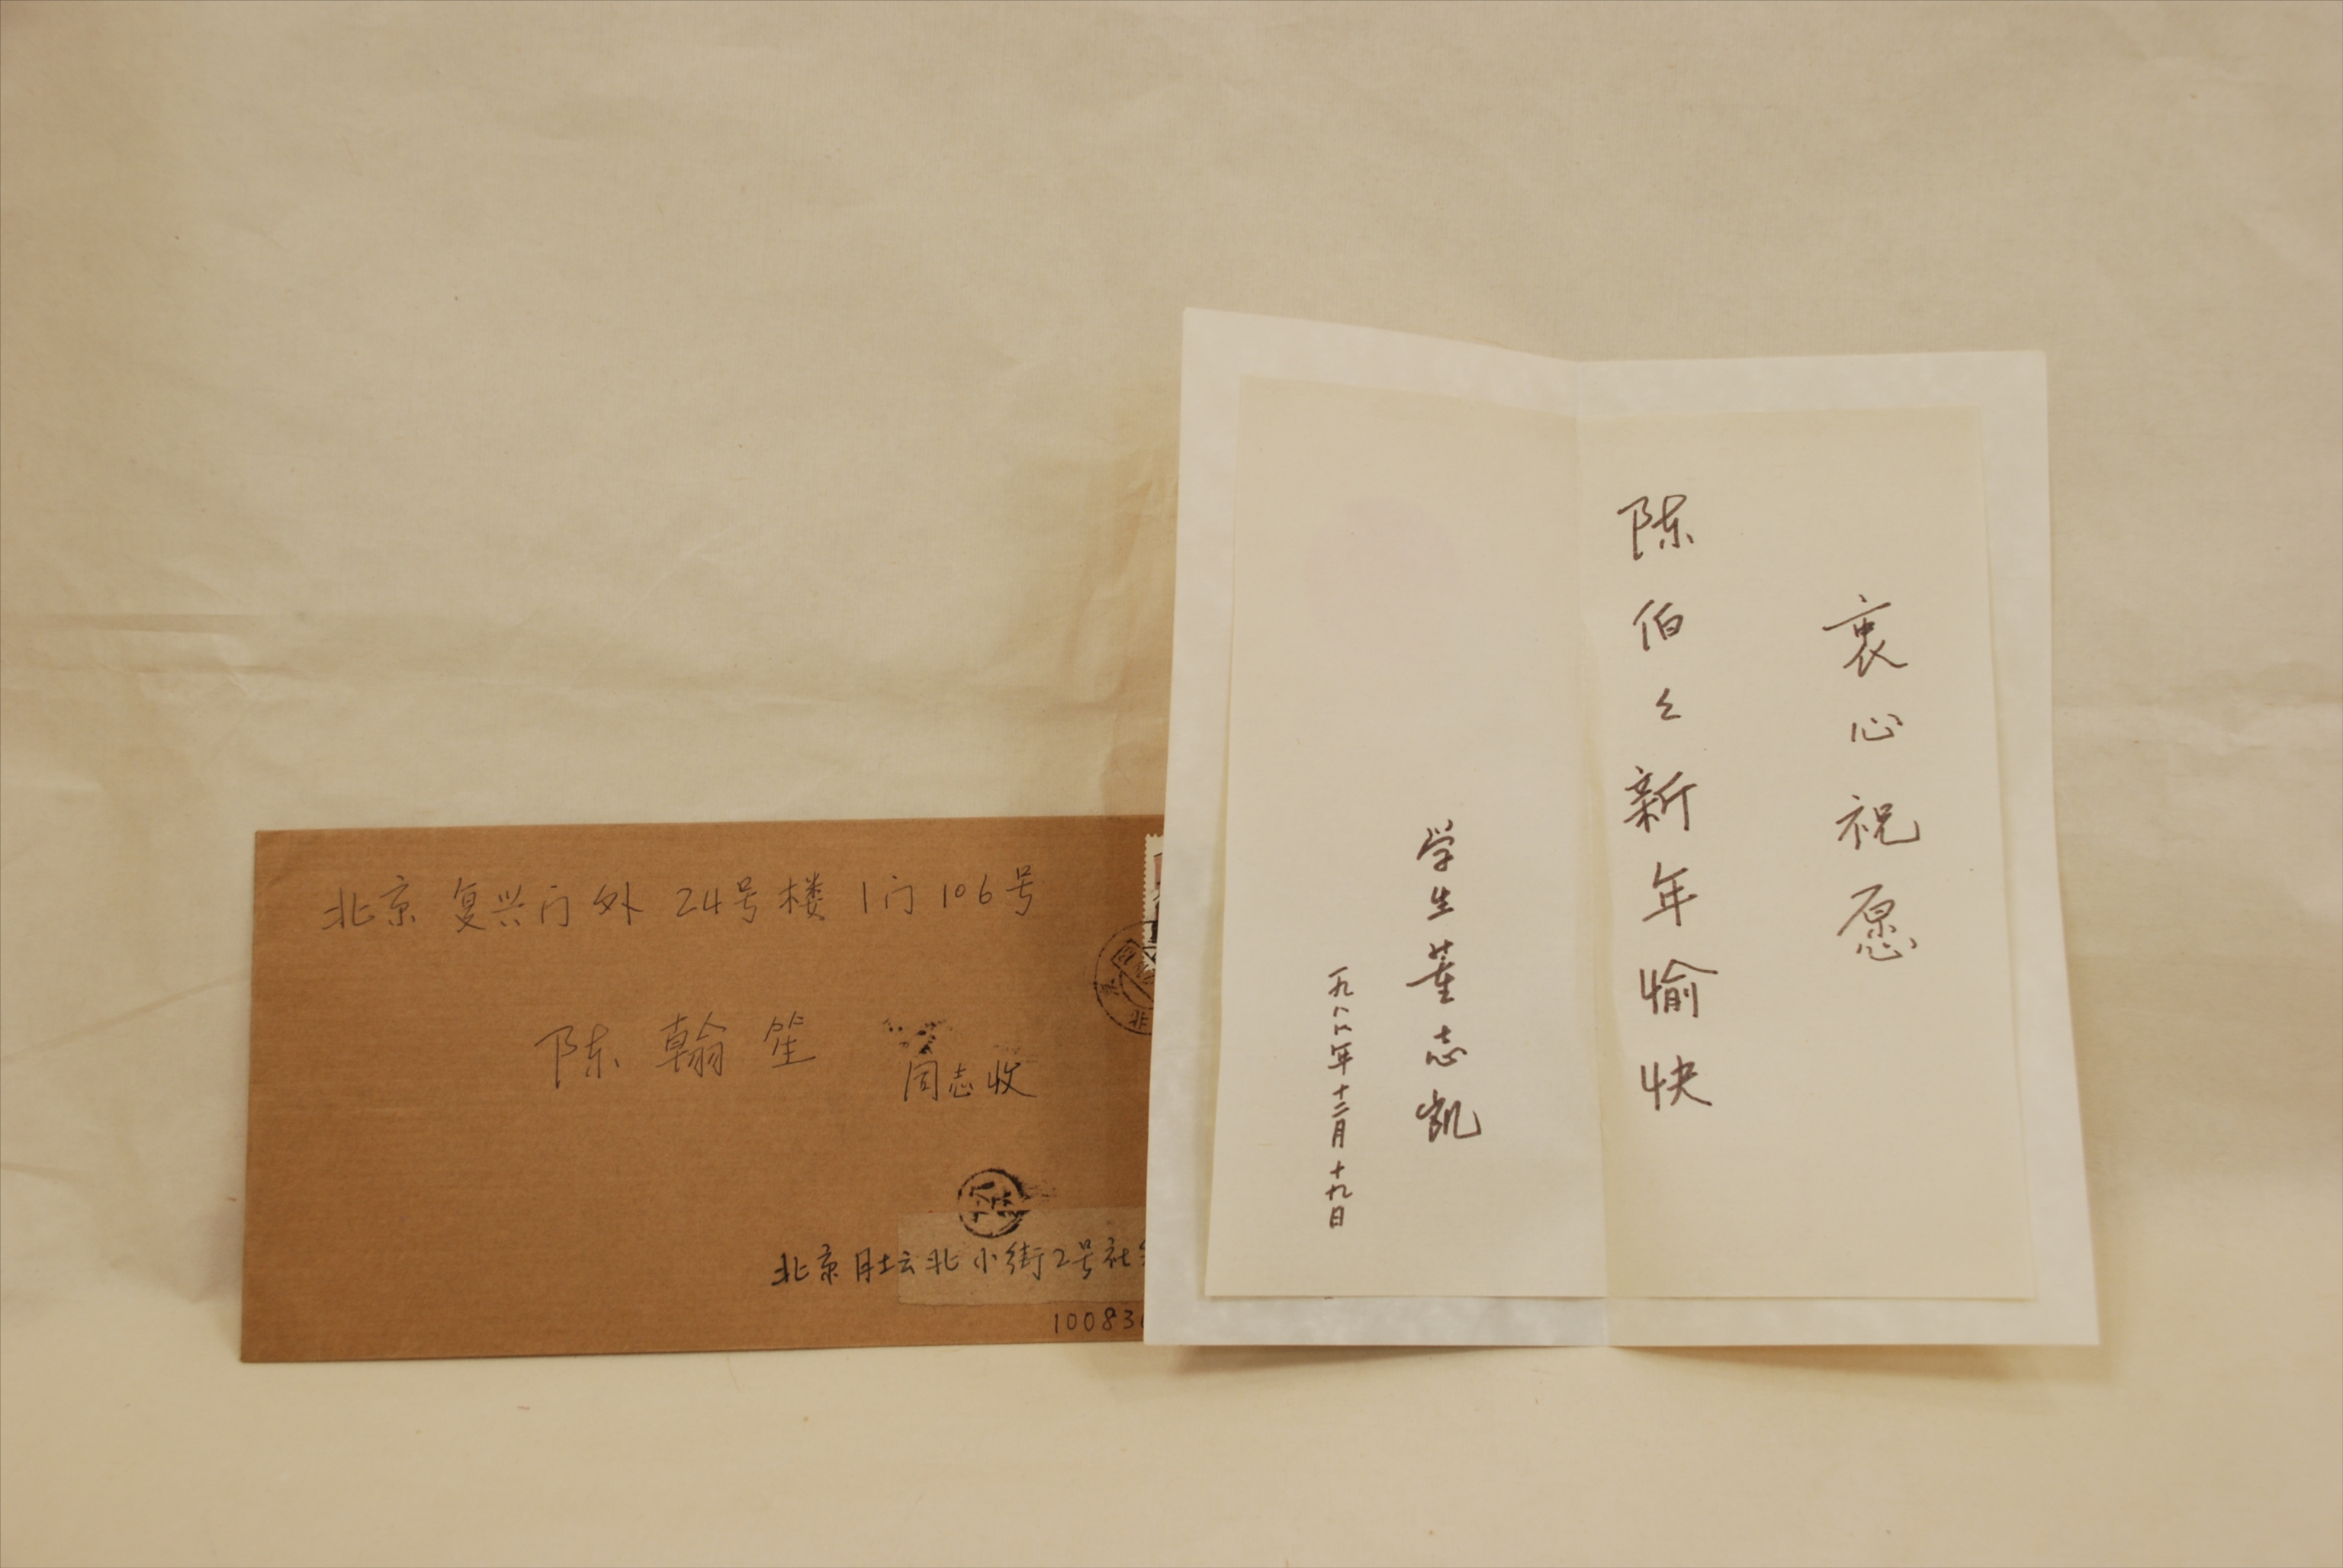 北京复兴门外24号楼1门106号
陈翰笙
同志收
北京月坛北小街2号社
10083
衷心祝愿
陈伯々新年愉快
学生董志凯
一九八八年十二月十九日